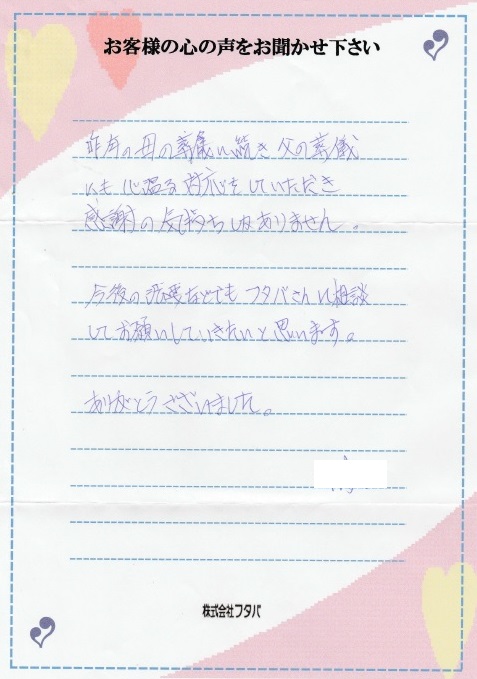 お客様の心の声をお聞かせ下さい
昨年の母の葬儀に続き 父の葬儀
にも 心温る 対応をしていただき
感謝の気持ちしかありません。
今後の法要などでも フタバさんに相談
してお願いしていきたいと思います。
ありがとうございました。
株式会社フタバ